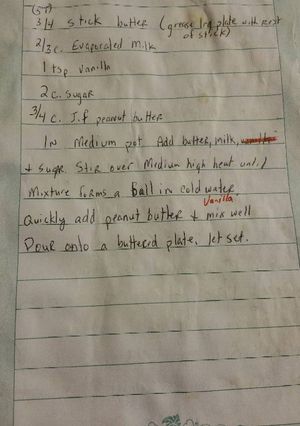 (5T)
3/4 stick butter (grease lrg plate with rest of stick)
2/3 c. Evaporated milk
1 tsp vanilla
2 c. sugar
3/4 c. J.f peanut butter
In medium pot Add butter, milk,
+ sugar. Stir over Medium high heat until
Mixture forms a ball in cold water.
Vanilla
Quickly add peanut butter + mix well
Pour onto a buttered plate, let set.